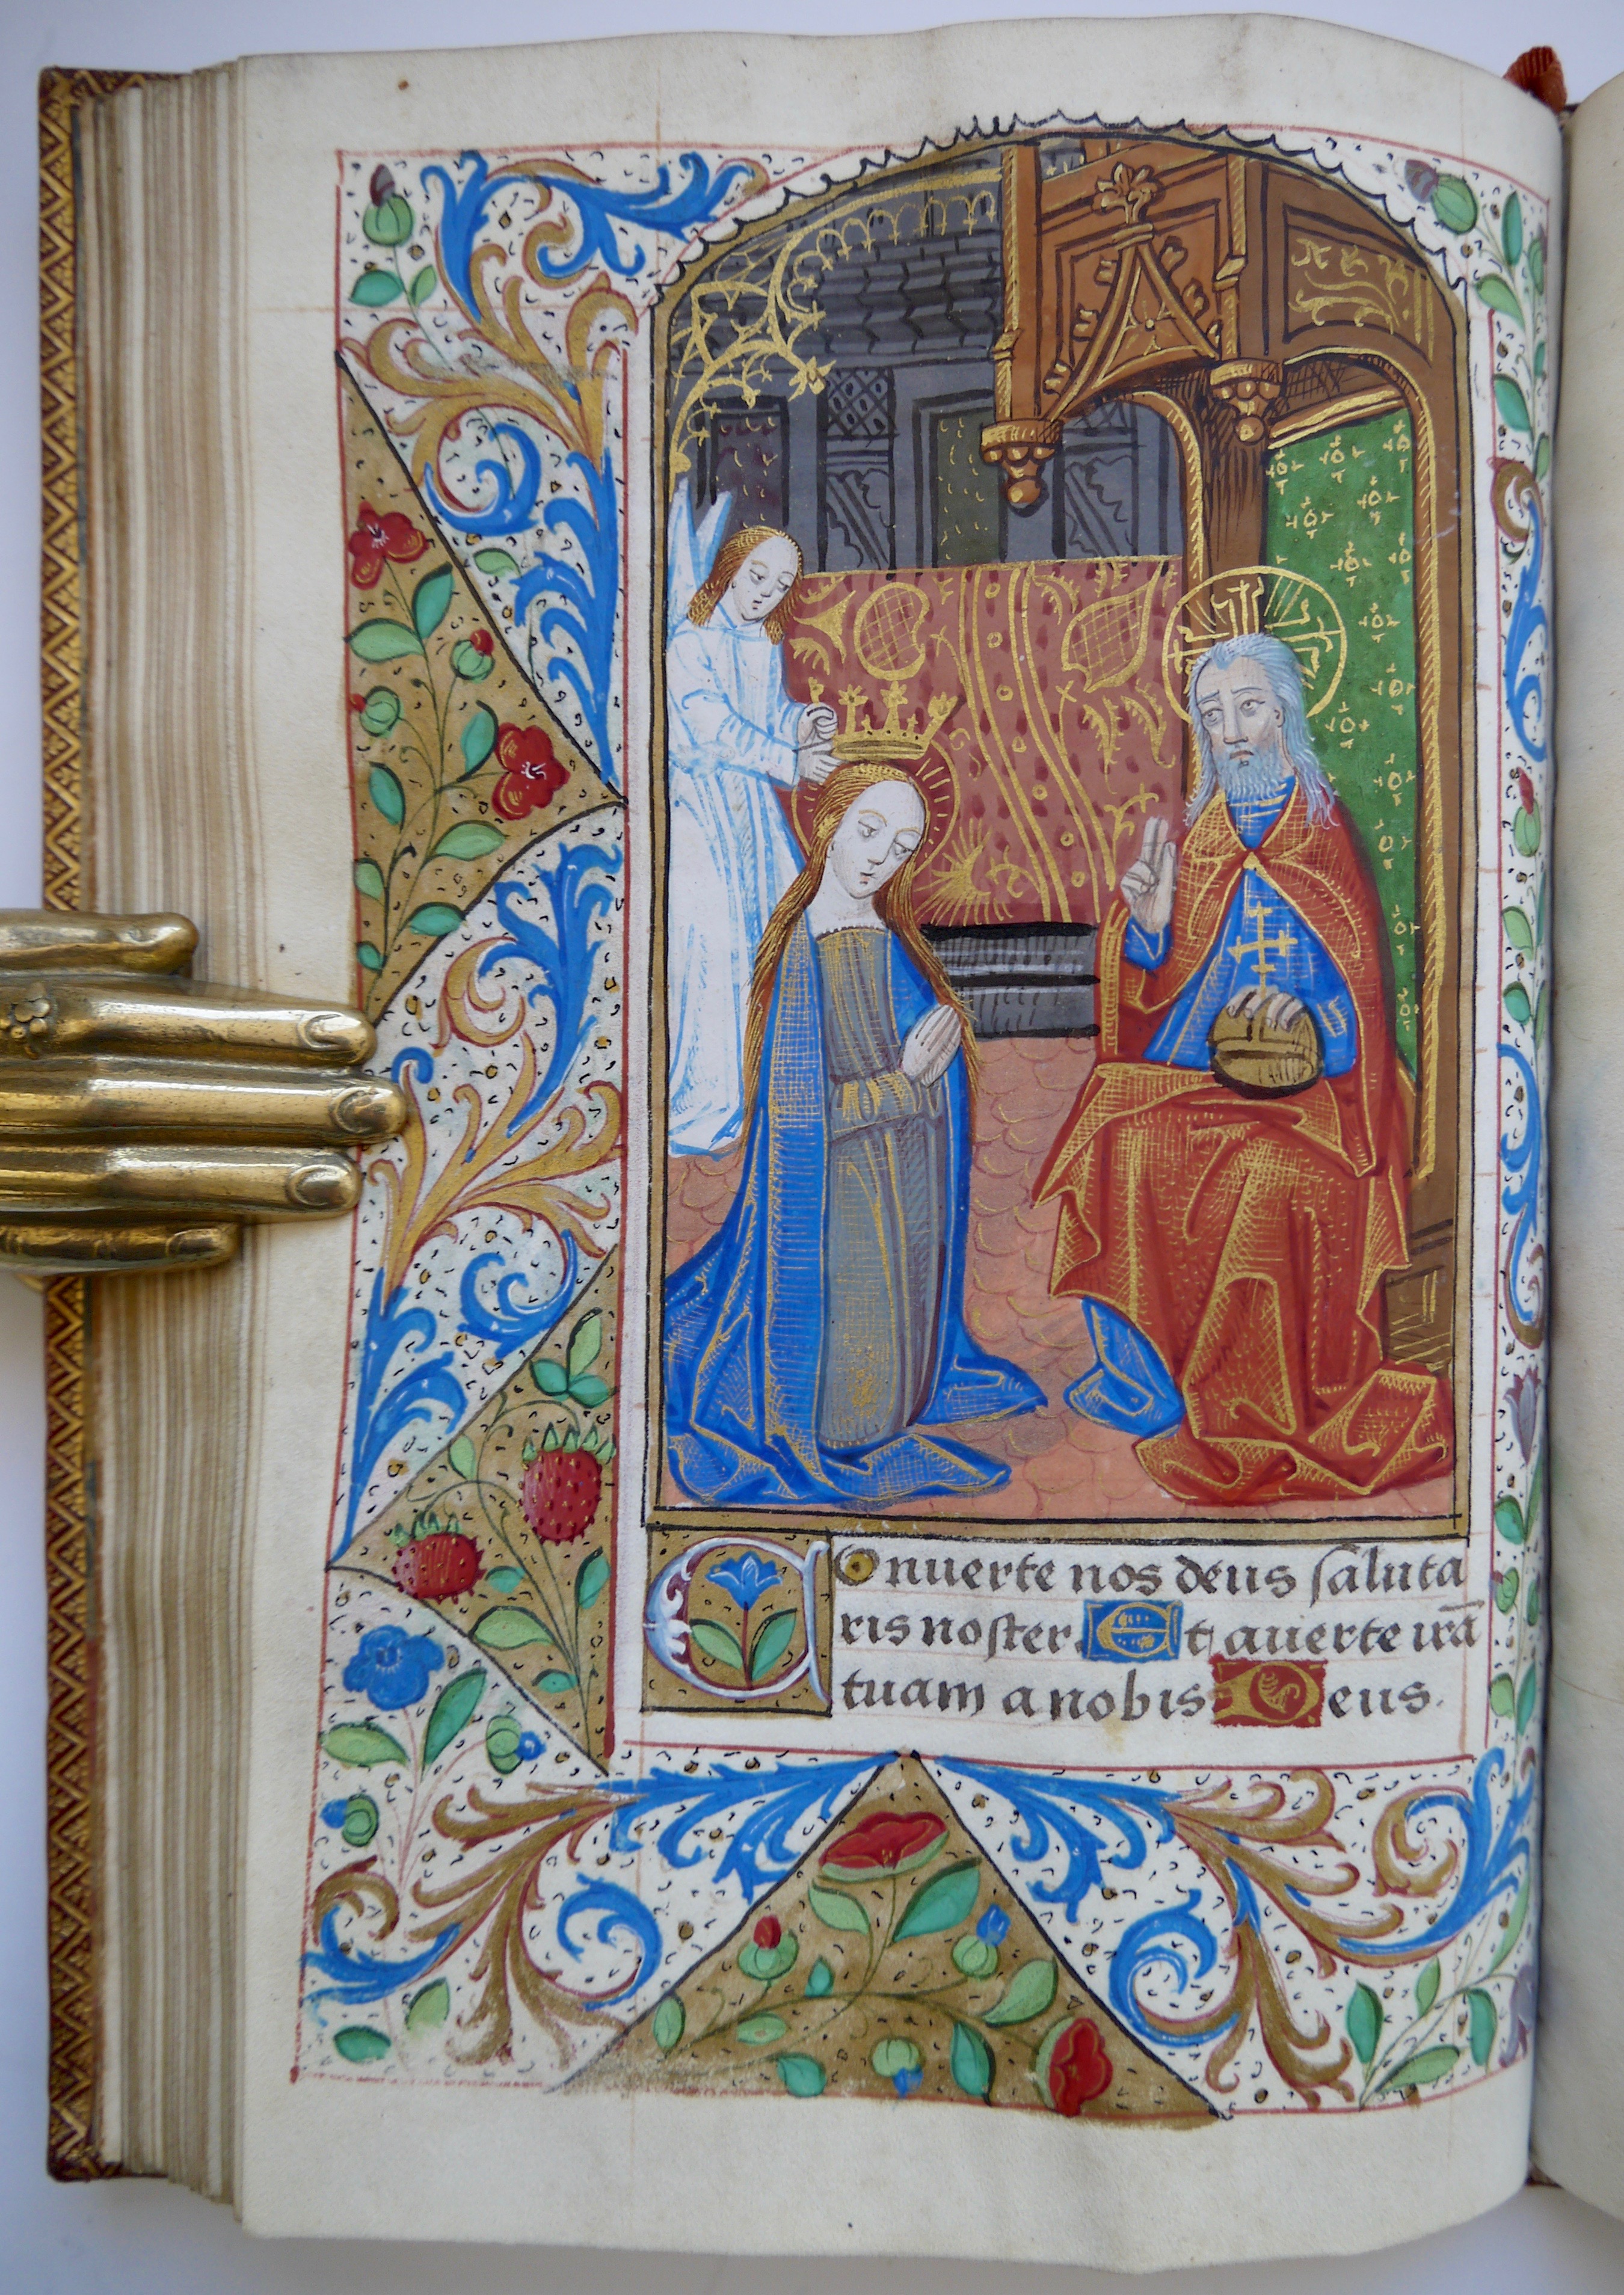 Conuerte nos deus saluta
ris noster. Et auerte irā
tuam a nobis Deus.